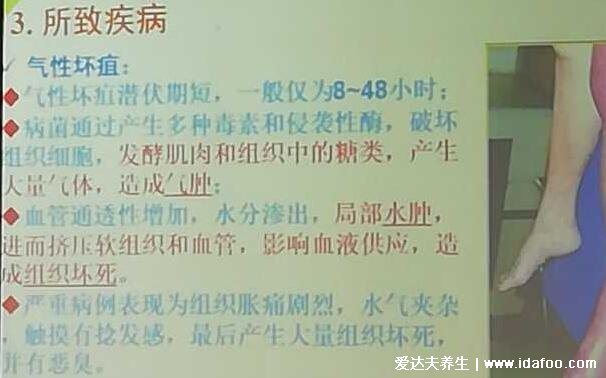 3. 所致疾病
✓ 气性坏疽：
◆气性坏疽潜伏期短，一般仅为8~48小时；
◆病菌通过产生多种毒素和侵袭性酶，破坏
组织细胞，发酵肌肉和组织中的糖类，产生
大量气体，造成气肿；
◆血管通透性增加，水分渗出，局部水肿，
进而挤压软组织和血管，影响血液供应，造
成组织坏死。
◆严重病例表现为组织胀痛剧烈，水气夹杂
，触摸有捻发感，最后产生大量组织坏死，
并有恶臭。
爱达夫养生 | www.idafoo.com